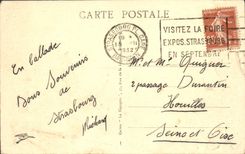 CARTE POSTALE
VISITEZ LA FOIRE
EXPOS. STRASBOURG
EN SEPTEMBRE
En ballade
Bons Souvenirs
de
Strasbourg
M. et Mme
2 passage Durantin
Houilles
Seine et Oise